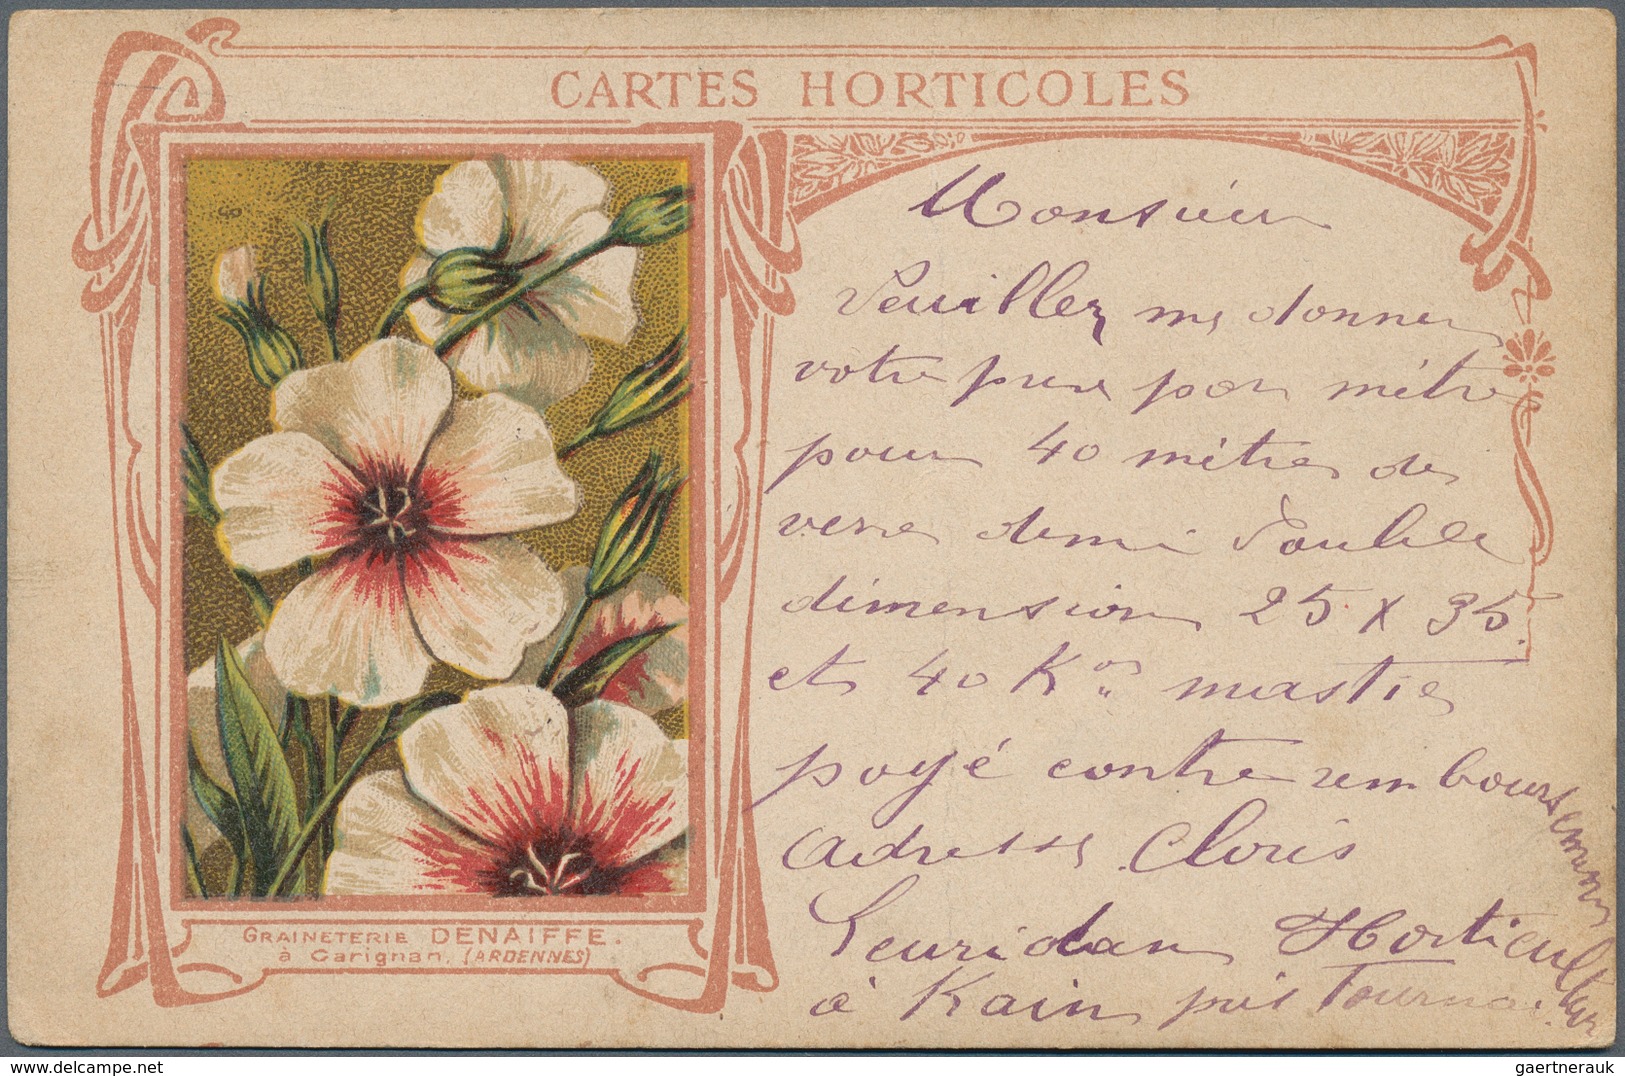 CARTES HORTICOLES
Monsieur
Veuillez me donner
votre prix par mètre
pour 40 mètres de
verre demi double
dimension 25 x 35
et 40 Kos mastic
payé contre remboursement
adresse Cloris
Leuridan Horticulteur
à Kain près Tournai
GRAINETERIE DENAIFFE.
à Carignan. (ARDENNES)
www.delcampe.net
gaertnerauk